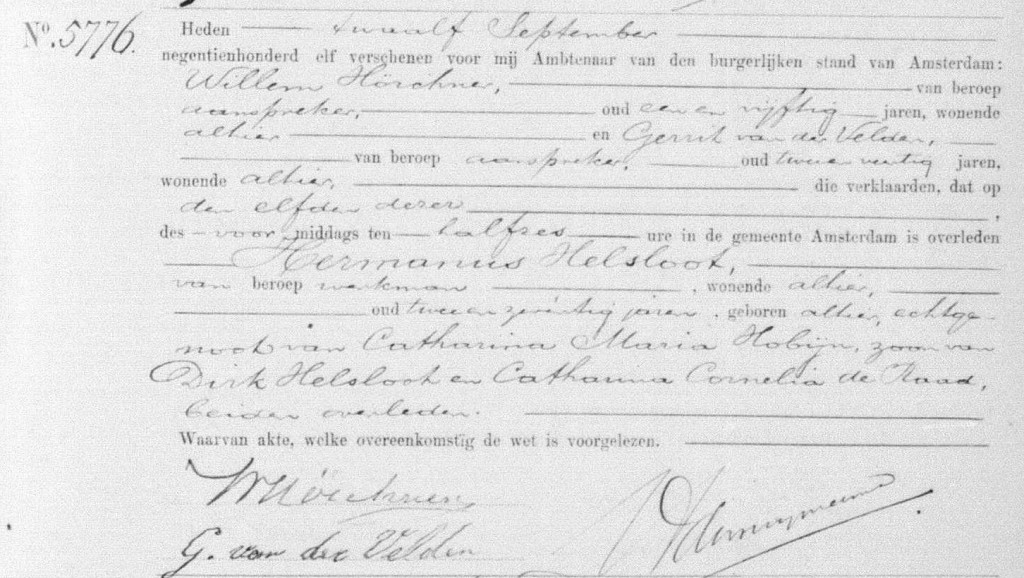 No. 5776.
Heden twaalf September
negentienhonderd elf verschenen voor mij Ambtenaar van den burgerlijken stand van Amsterdam:
Willem Hörchner, van beroep
aanspreker, oud een en vijftig jaren, wonende
alhier en Gerrit van der Velden,
van beroep aanspreker, oud twee en veertig jaren,
wonende alhier, die verklaarden, dat op
den elfden dezer,
des voor middags ten halfzes ure in de gemeente Amsterdam is overleden
Hermanus Helsloot,
van beroep werkman, wonende alhier,
oud twee en zeventig jaren, geboren alhier, echtge-
noot van Catharina Maria Hobijn, zoon van
Dirk Helsloot en Catharina Cornelia de Raad,
beiden overleden.
Waarvan akte, welke overeenkomstig de wet is voorgelezen.
W Hörchner
G. van der Velden